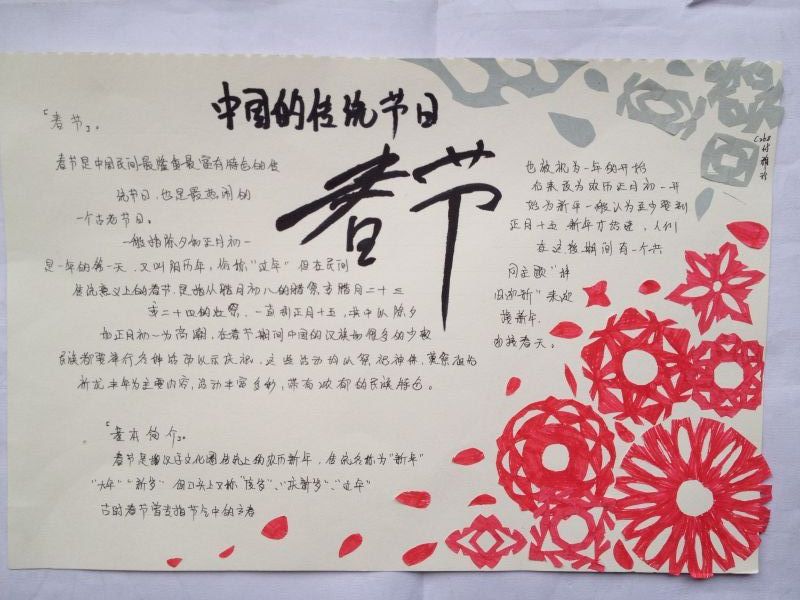 中国的传统节日
春节
「春节」。
春节是中国民间最隆重最富有特色的传
统节日,也是最热闹的
一个古老节日。
一般指除夕和正月初一
是一年的第一天,又叫阴历年,俗称"过年"但在民间
传统意义上的春节是指从腊月初八的腊祭或腊月二十三
或二十四的祭灶,一直到正月十五,其中以除夕
和正月初一为高潮,在春节期间中国的汉族和很多的少数
民族都要举行各种活动以示庆祝,这些活动均以祭祀神佛,祭奠祖先
祈求丰年为主要内容,活动丰富多彩,带有浓郁的民族特色。
「基本简介」。
春节是汉字文化圈传统上的农历新年,传统名称为"新年"
"大年""新岁"但口头上又称"度岁"、"庆新岁"、"过年"
古时春节曾专指节气中的立春
也被视为一年的开始
后来改为农历正月初一开
始为新年一般认为至少要到
正月十五新年才结束,人们
在这段期间有一个共
同主题"辞
旧迎新"来迎
接新年
迎接春天。